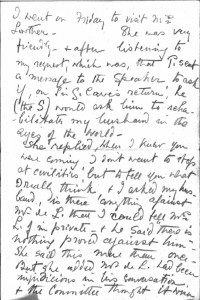 I went on Friday to visit Mrs
She was very
friendly - & after listening to
my request, which was, that I sent
a message to the Speaker to ask
if, on Sir G. return, he
(the S) would ask him to reha-
bilitate my husband in the
eyes of the World -
She replied, when I knew you
were coming I don't want to stop
at civilities but to tell you what
I really think & I asked my hus-
band, is there anything against
Mr de L. that I could tell Mrs
L. of in private - & he said there is
nothing proved against him -
She said this more than once -
But she added Mr de L. had been
injudicious in his conversation
& the Committee thought it